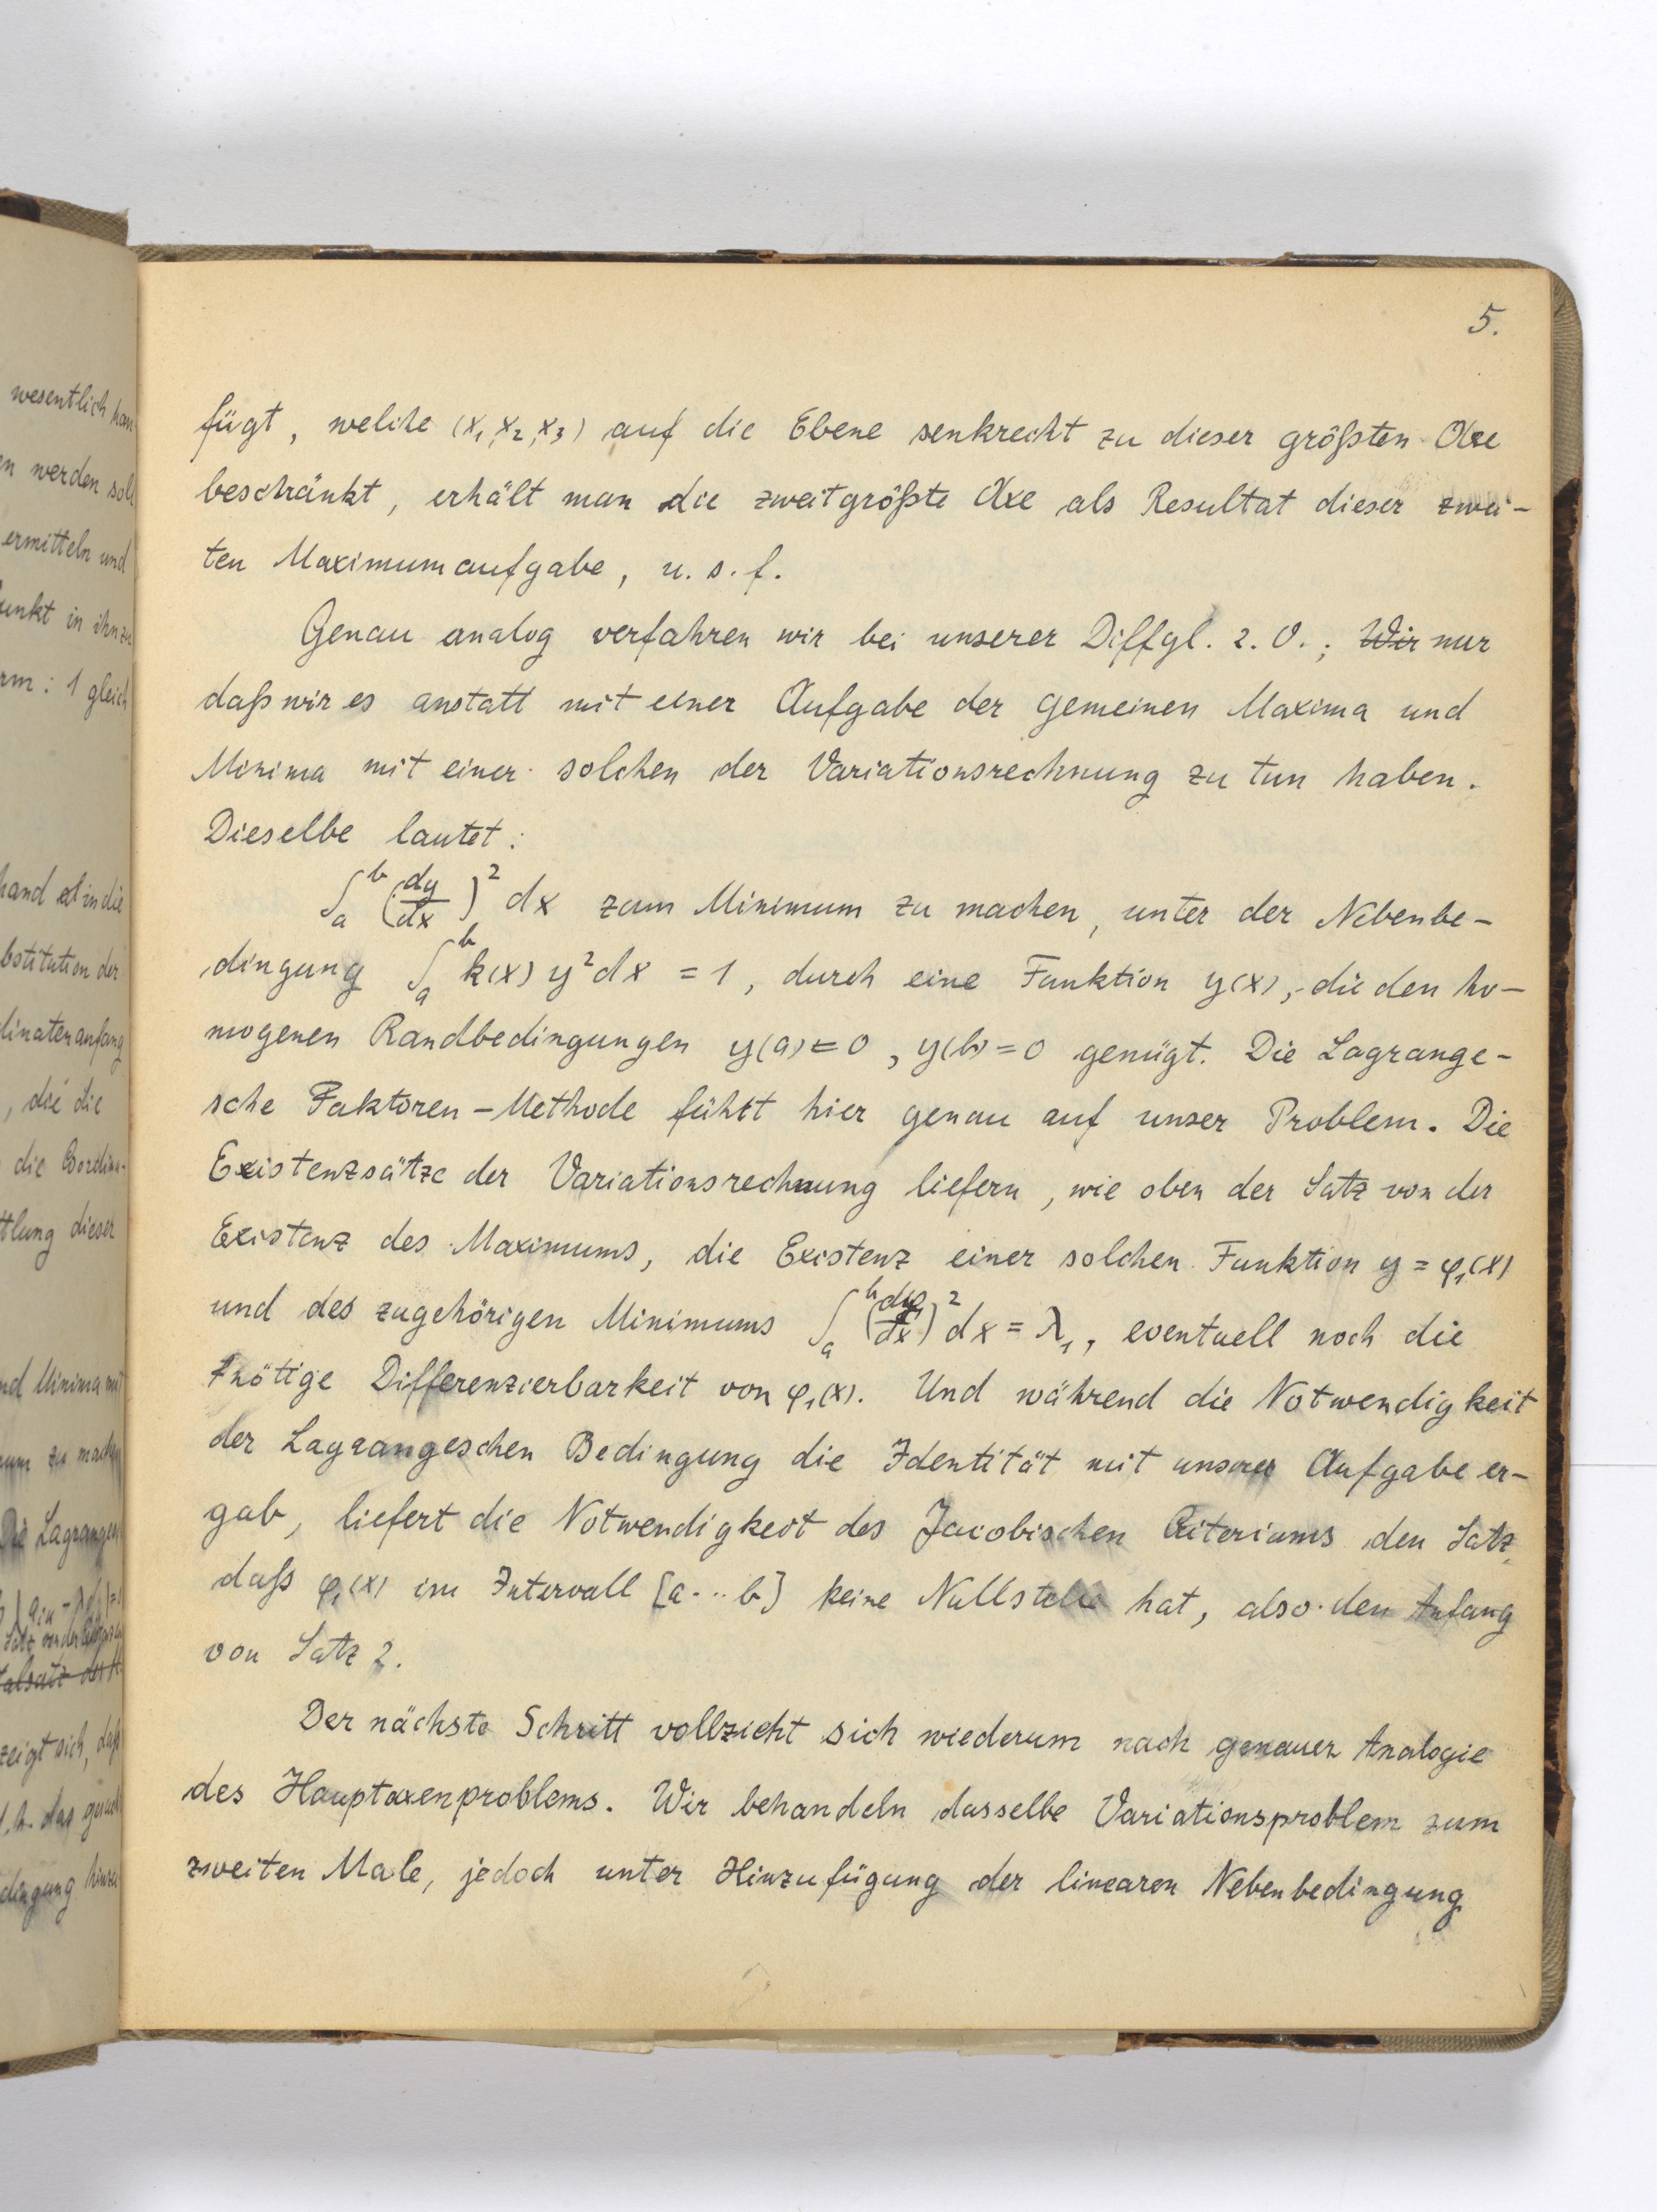 wesentlich
en werden soll
ermitteln und
punkt in ihn zu
rm: 1 gleich
hand
bstitution der
dinatenanfang
, die die
die Coordina-
ttlung dieser
nd Minima mit
um zu machen
Die Lagrangen
zeigt sich, daß
d.h. das
dingung hinzu
5.
fügt, welche (x₁, x₂, x₃) auf die Ebene senkrecht zu dieser größten Axe
beschränkt, erhält man die zweitgrößte Axe als Resultat dieser zwei-
ten Maximumaufgabe, u. s. f.
Genau analog verfahren wir bei unserer Diffgl. 2. O.; Wir nur
daß wir es anstatt mit einer Aufgabe der gemeinen Maxima und
Minima mit einer solchen der Variationsrechnung zu tun haben.
Dieselbe lautet:
∫ₐᵇ (dy/dx)² dx zum Minimum zu machen, unter der Nebenbe-
dingung ∫ₐᵇ k(x) y² dx = 1, durch eine Funktion y(x), die den ho-
mogenen Randbedingungen y(a) = 0, y(b) = 0 genügt. Die Lagrange-
sche Faktoren-Methode führt hier genau auf unser Problem. Die
Existenzsätze der Variationsrechnung liefern, wie oben der Satz von der
Existenz des Maximums, die Existenz einer solchen Funktion y = φ₁(x)
und des zugehörigen Minimums ∫ₐᵇ (dφ₁/dx)² dx = λ₁, eventuell noch die
nötige Differenzierbarkeit von φ₁(x). Und während die Notwendigkeit
der Lagrangeschen Bedingung die Identität mit unserer Aufgabe er-
gab, liefert die Notwendigkeit des Jacobischen Criteriums den Satz,
daß φ₁(x) im Intervall [a...b] keine Nullstelle hat, also den Anfang
von Satz 2.
Der nächste Schritt vollzieht sich wiederum nach genauer Analogie
des Hauptaxenproblems. Wir behandeln dasselbe Variationsproblem zum
zweiten Male, jedoch unter Hinzufügung der linearen Nebenbedingung